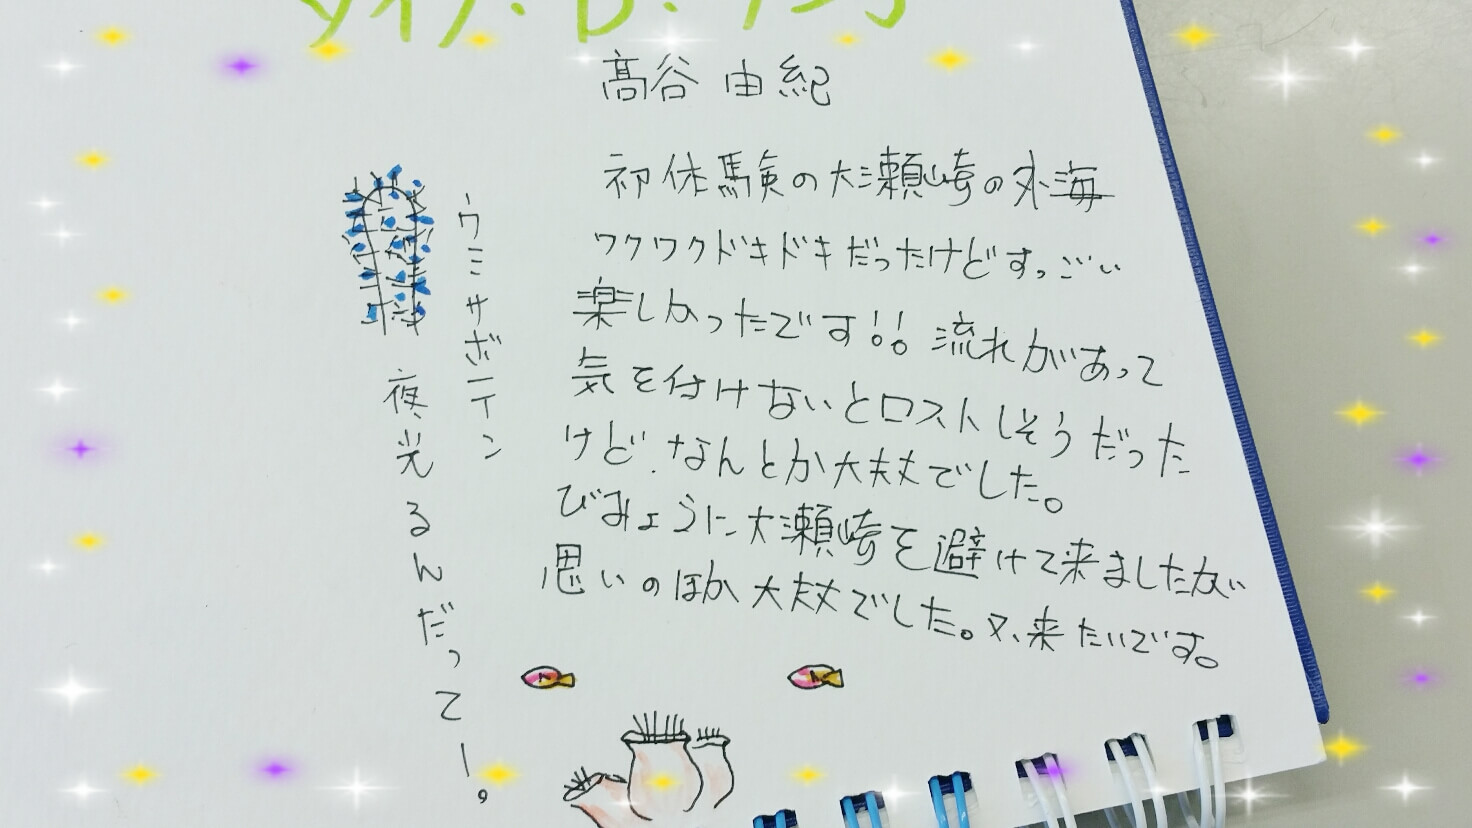 髙谷 由紀
初体験の大瀬崎の外海
ワクワクドキドキだったけどすっごい
楽しかったです!! 流れがあって
気を付けないとロストしそうだった
けど、なんとか大丈夫でした。
びみょうに大瀬崎を避けて来ましたがい
思いのほか大丈夫でした。又、来たいです。
ウミサボテン
夜光るんだってー。